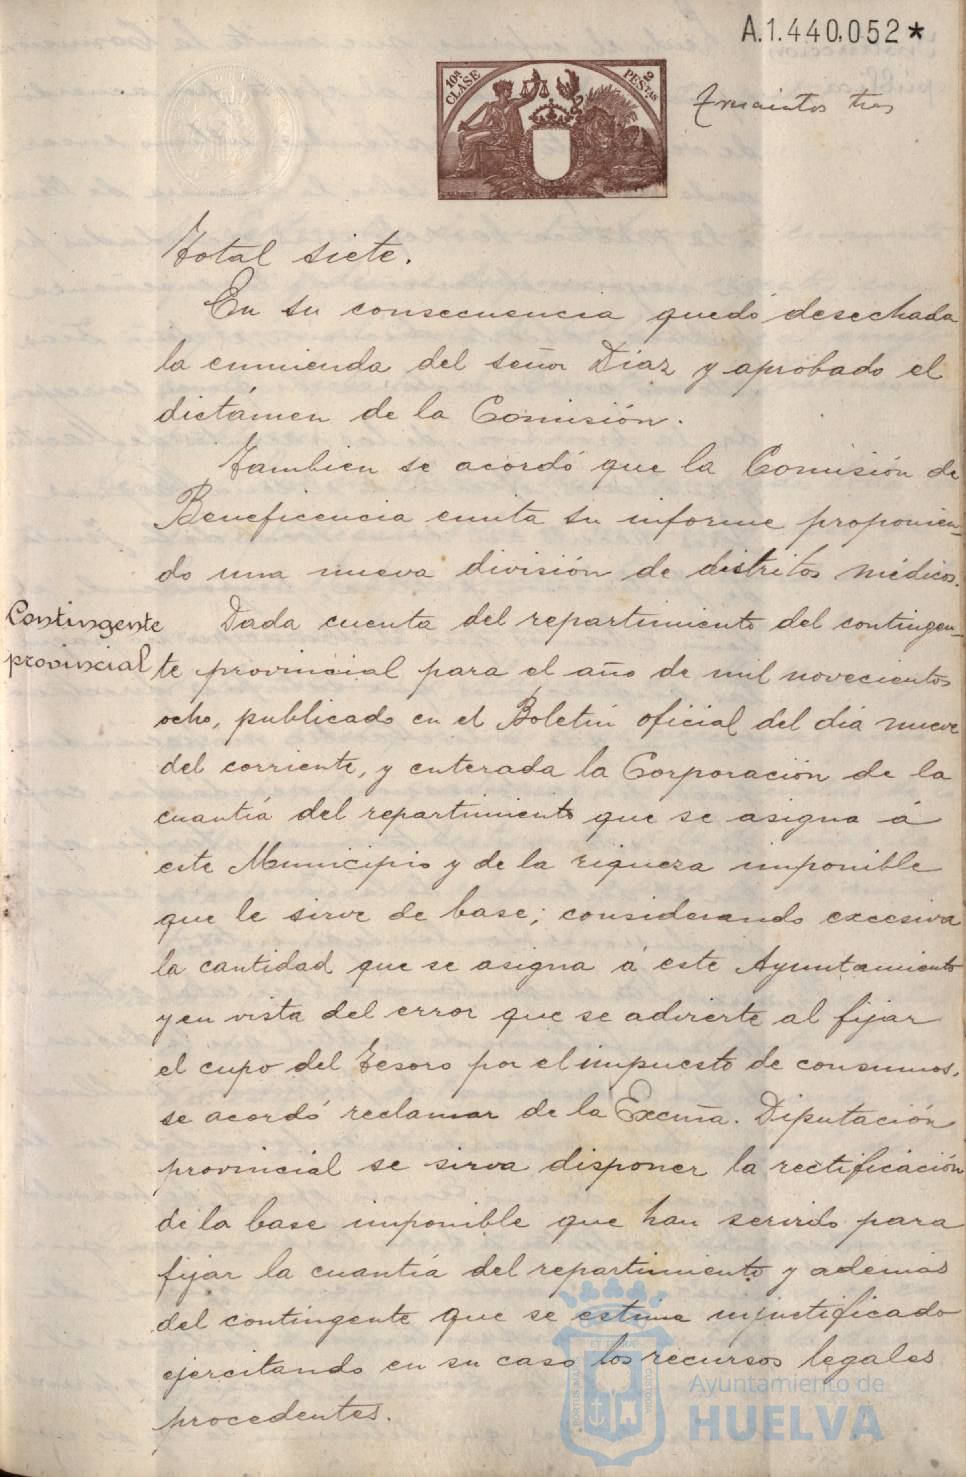 A.1.440,052*
10ª CLASE
2 PESTAS
Trescientos tres
Total siete.
En su consecuencia quedó desechada
la enmienda del señor Díaz y aprobado el
dictámen de la Comisión.
Tambien se acordó que la Comisión de
Beneficencia emita su informe proponien-
do una nueva división de distritos médicos.
Contingente
provincial
Dada cuenta del repartimiento del contingen-
te provincial para el año de mil novecientos
ocho, publicado en el Boletín oficial del día nueve
del corriente, y enterada la Corporación de la
cuantía del repartimiento que se asigna á
este Municipio y de la riqueza imponible
que le sirve de base; considerando excesiva
la cantidad que se asigna á este Ayuntamiento
y en vista del error que se advierte al fijar
el cupo del Tesoro por el impuesto de consumos,
se acordó reclamar de la Excma. Diputación
provincial se sirva disponer la rectificación
de la base imponible que han servido para
fijar la cuantía del repartimiento y además
del contingente que se estima injustificado
ejercitando en su caso los recursos legales
procedentes.
PORTUS MARIS ET TERRÆ CUSTODIA
Ayuntamiento de
HUELVA